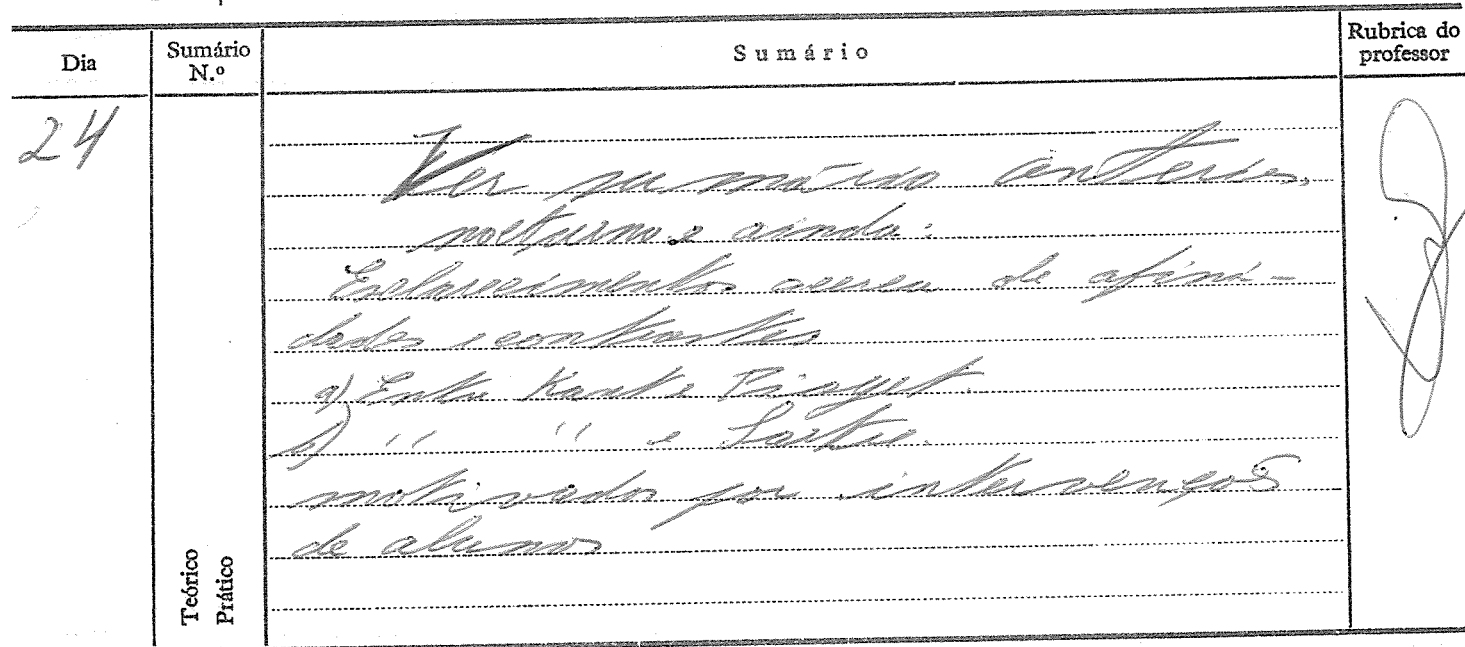 Dia
Sumário N.º
Sumário
Rubrica do professor
24
Ver sumário anterior,
nocturno e ainda:
Esclarecimentos acerca de afini-
dades e contrastes
a) Entre Kant e Piaget.
b) '' '' e Sartre.
motivados por intervenções
de alunos
Teórico
Prático